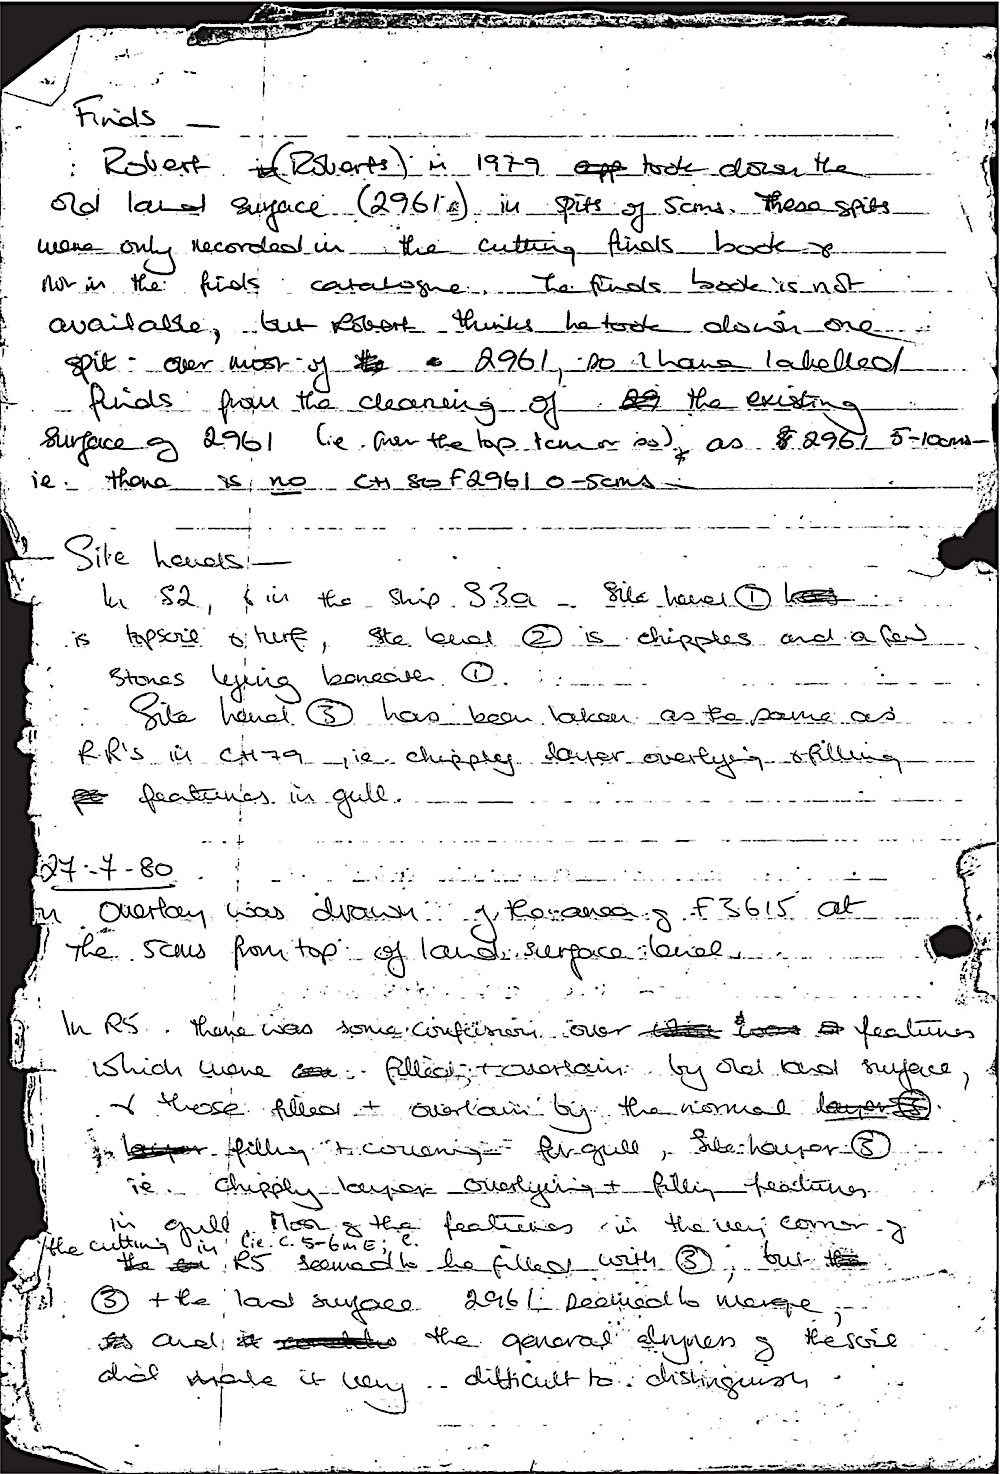 Finds —
Robert (Roberts) in 1979 took down the
old land surface (2961) in spits of 5cms. These spits
were only recorded in the cutting finds book &
not in the finds catalogue. The finds book is not
available, but Robert thinks he took down one
spit over most of 2961, so I have labelled
finds from the cleaning of the existing
surface of 2961 (ie. over the top 1cm or so), as 2961 5-10cms –
ie. there is no CH 80 F2961 0-5cms.
Site levels —
In S2, & in the strip S3a – Site level ①
is topsoil & turf, site level ② is chipples and a few
stones lying beneath ①.
Site level ③ has been taken as the same as
RR's in CH79, ie. chipply layer overlying & filling
features in gull.
27-7-80
overlay was drawn of the area of F3615 at
the 5cms from top of land surface level.
In R5. there was some confusion over features
which were filled + overlain by old land surface,
& those filled + overlain by the normal
filling + covering for gull, Site Layer ③
ie. chipply layer overlying + filling features
in gull. Most of the features in the very corner of
the cutting in (ie. c. 5-6m E;
R5 seemed to be filled with ③, but
③ + the land surface 2961 seemed to merge,
and the general dryness of the soil
did make it very difficult to distinguish.